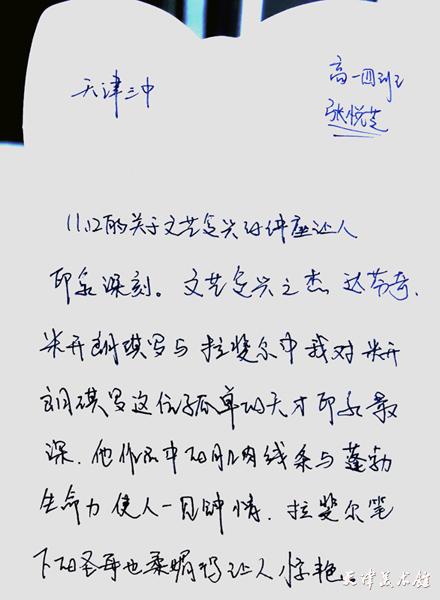 天津三中
高一四班
张悦芝
11.12的关于文艺复兴的讲座让人
印象深刻。文艺复兴之杰达芬奇、
米开朗琪罗与拉斐尔中我对米开
朗琪罗这位孤单的天才印象最
深.他作品中的肌肉线条与蓬勃
生命力使人一见钟情.拉斐尔笔
下的圣母也柔媚得让人惊艳。
天津美术馆